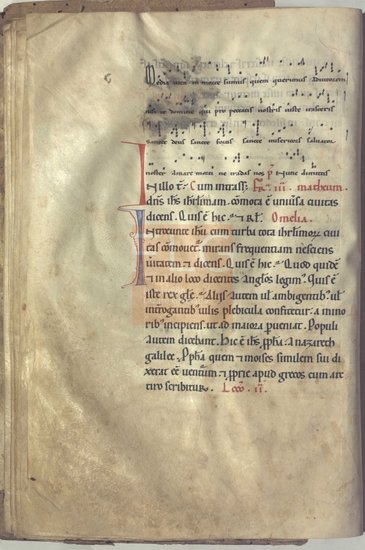 Media vita in morte sumus quem querimus adiutorem
nisi te domine qui pro peccatis nostris iuste irasceris
sancte deus sancte fortis sancte misericors saluator
noster amare morti ne tradas nos p Nunc dimittis
N illo t. Cum intrass; F. iii. matheum.
dñs ihs ihrlimam. cōmota ē uniusa ciuitas
dicens. Quis ē hic. ⁊ Rł. Omelia.
Ntroeunte ihu cum turba tota ihrlimoꝝ ciui
tas cōmouet. mirans frequentiam nesciens
uitatem ⁊ dicens. Quis ē hic. Quod quidē
⁊ in alio loco dicentes anglos legim. Quis ē
iste rex glē. Aliis autem ul ambigentib ul
int̄rogantib uilis plebicula confitetur. a mino
rib incipiens. ut ad maiora pueniat. Populi
autem dicebant. Hic ē ihs ppha. a nazareth
galilee. Ppha quem ⁊ moises similem sui di
xerat eē uentuꝝ. ⁊ pprie apud grecos cum arti
culo scribitur. Lcō. ii.